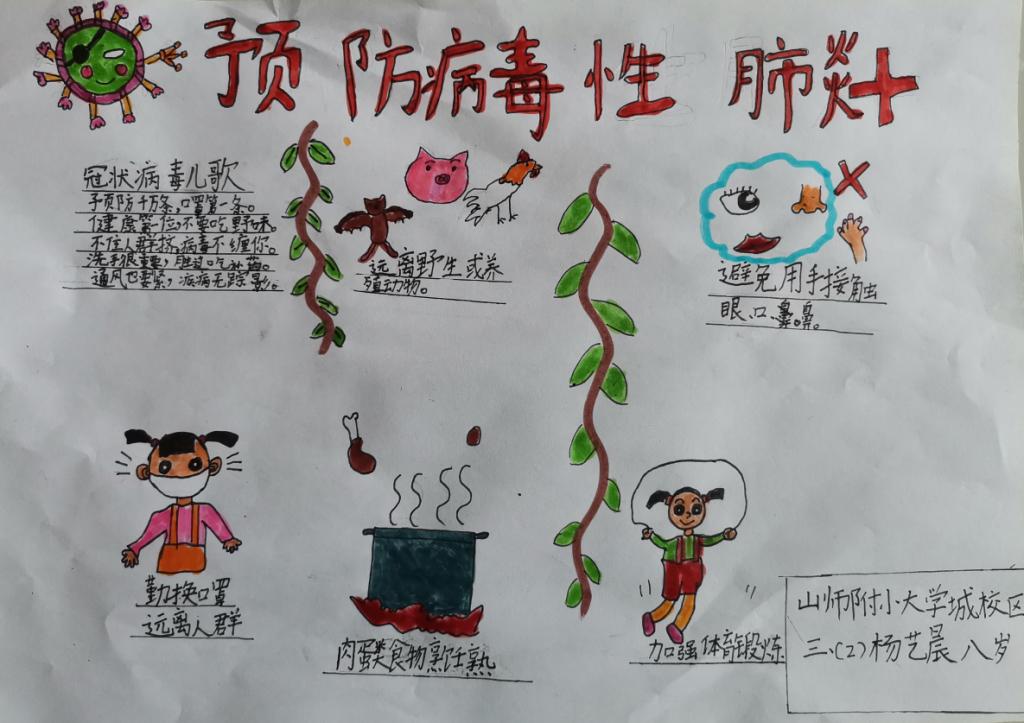 预防病毒性肺炎
冠状病毒儿歌
预防千万条，口罩第一条。
健康第一位，不要吃野味。
不往人群挤，病毒不缠你。
洗手很重要，胜过吃补药。
通风也要紧，疾病无踪影。
远离野生或养
殖动物。
避免用手接触
眼、口、鼻。
勤换口罩
远离人群
肉蛋类食物烹饪熟
加强体育锻炼
山师附小大学城校区
三、(2)杨艺晨八岁